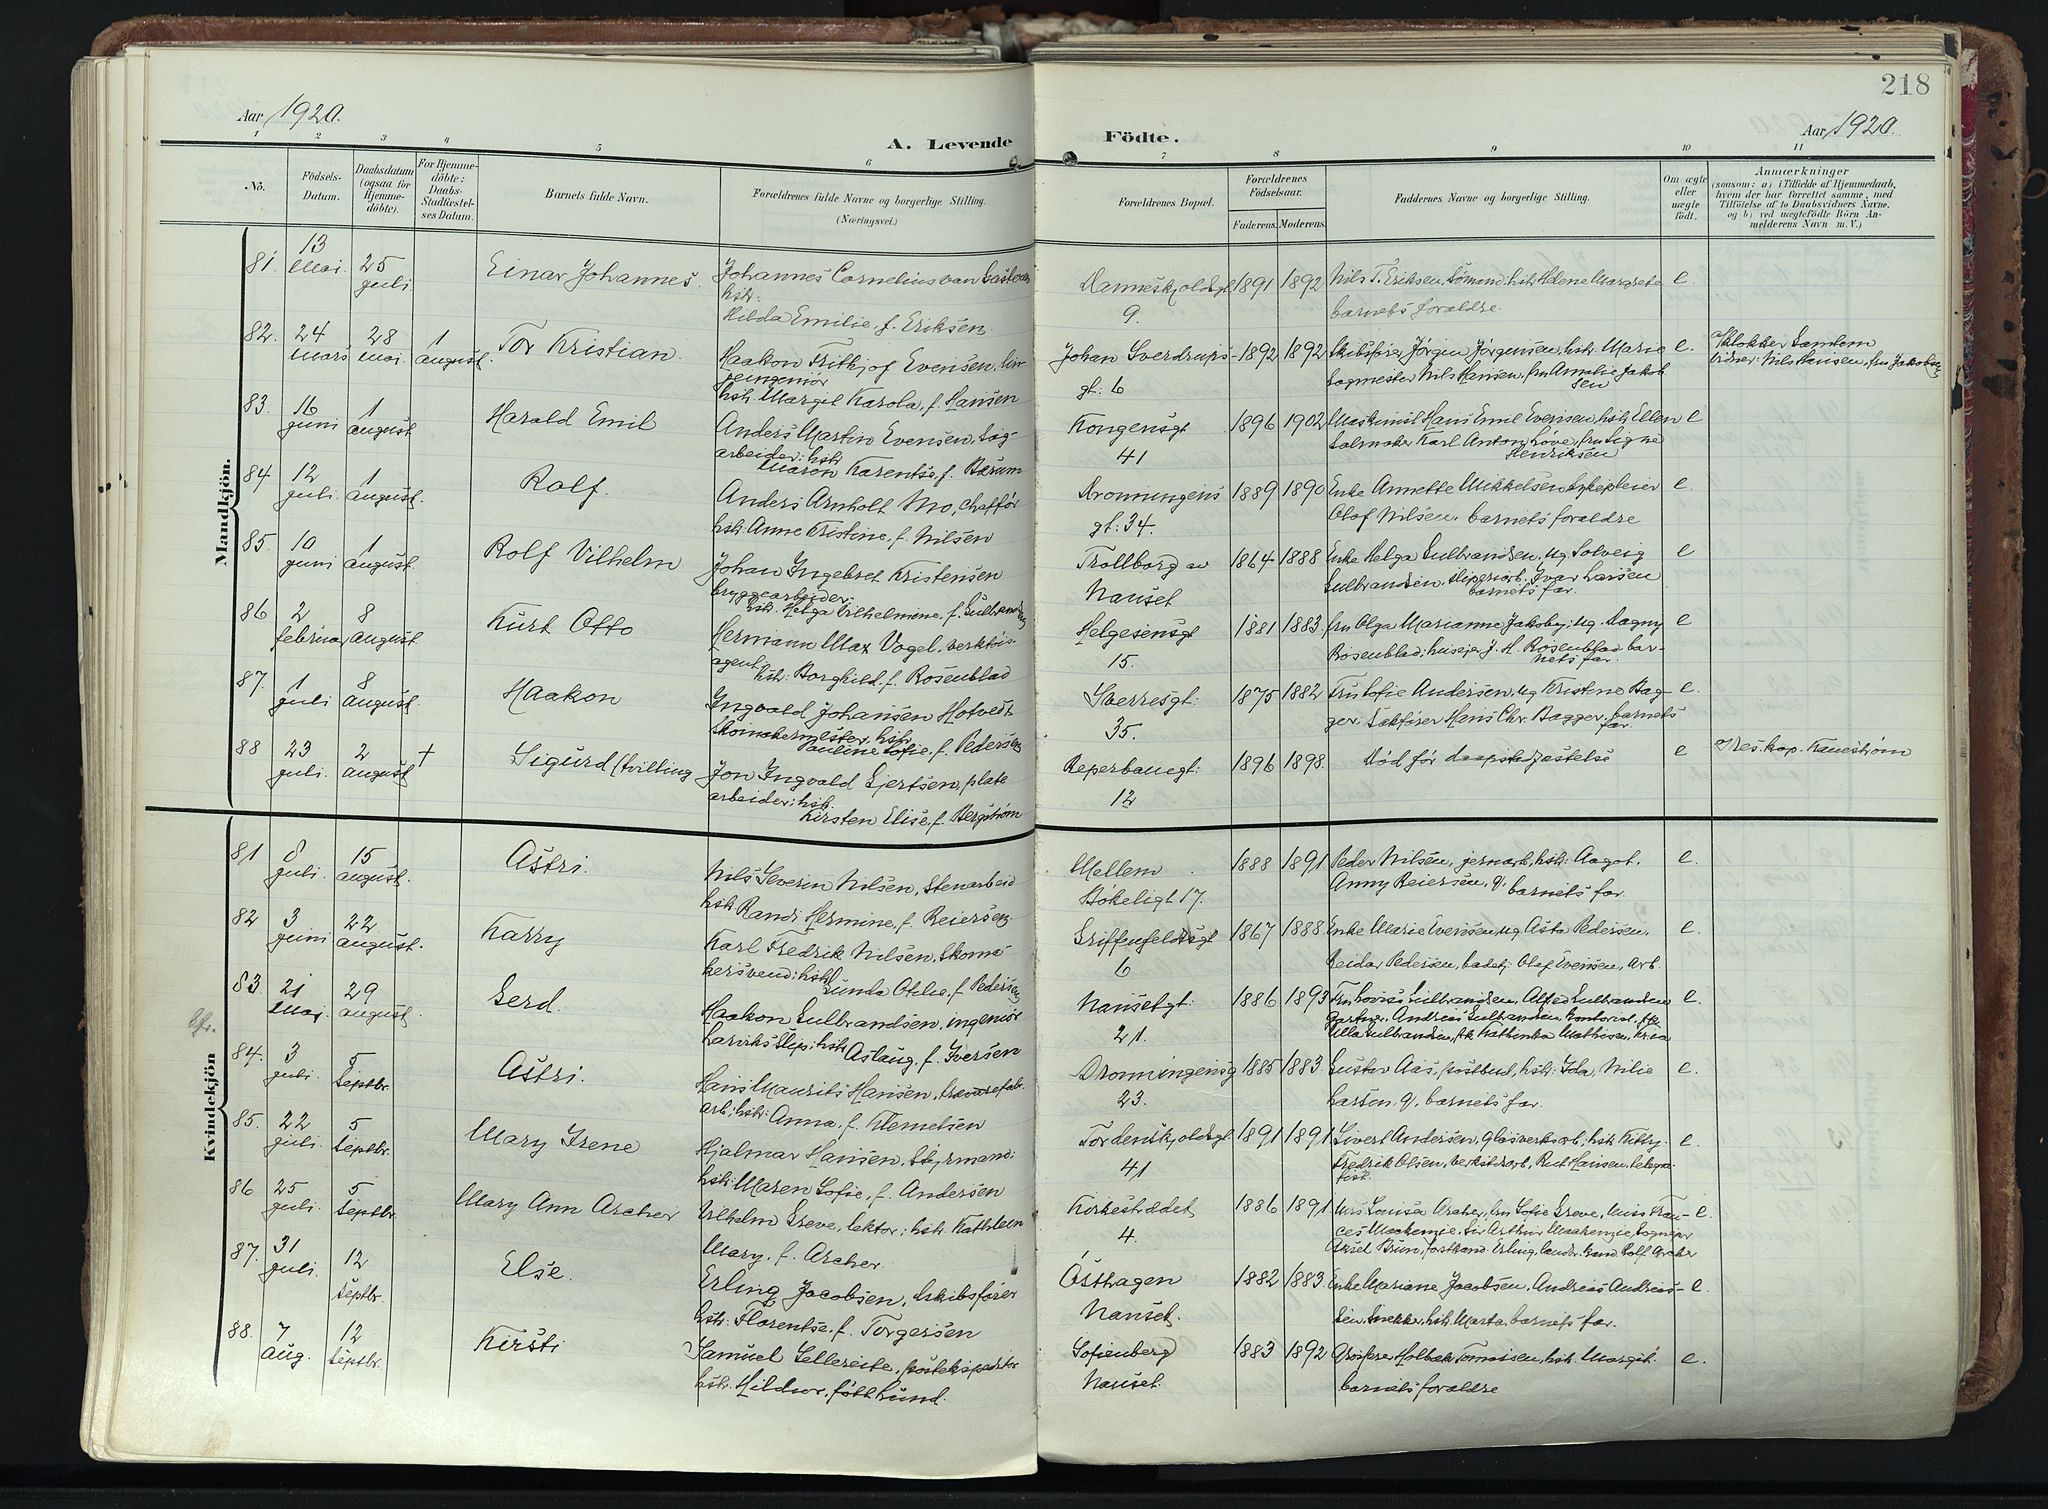 218
Aar 1920.
A. Levende Födte.
Aar 1920.
1 2 3 4 5 6 7 8 9 10 11
No. Födsels-Datum. Daabsdatum (ogsaa for Hjemme-döbte). For Hjemme-döbte: Daabs-Stadfæstel-ses Datum. Barnets fulde Navn. Forældrenes fulde Navne og borgerlige Stilling. (Næringsvei.) Forældrenes Bopæl. Forældrenes Födselsaar. Faderens. Moderens. Faddernes Navne og borgerlige Stilling. Om ægte eller uægte födt. Anmærkninger
(saasom: a) i Tilfælde af Hjemmedaab, hvem der har forrettet samme, med Tilföielse af to Daabsvidners Navne, og b) ved uægtefödte Börn An-melderens Navn m. V.)
Mandkjön.
81. 13 Mai. 25 juli Einar Johannes. Johannes Cornelius van
hstr.
Hilda Emilie f. Eriksen.
Danneskjoldsgt 9. 1891 1892 Nils T. Eriksen, Sømand; hstr Helene Margrete
barnets forældre.
e.
82. 24 Mars 28 Mai. 1 august. Tor Kristian. Haakon Frithjof Evensen,
ingeniør
hstr. Margit Karola, f. Hansen
Johan Sverdrups-gt. 6 1892 1892 Skibsfører Jørgen Jørgensen, hstr. Marie
Sagmester Nils Hansen, fru Amalie Jakob
sen
e. a/ Klokker Samlem
vidner: Nils Hansen, fru Jakobsen
83. 16 juni 1 august Harald Emil Anders Martin Evensen, Sag-
arbeider; hstr
Maron Karentse f. Bærum
Kongensgt 41 1896 1902 Maskinist Hans Emil Evensen, hstr Ellen
Salmaker Karl Anton Løve, fru Signe
Henriksen
e
84 12 juli 1 august. Rolf. Anders Arnholt Mo, chaffør
hstr. Anne Kristine, f. Nilsen
Dronningens gt: 34. 1889 1890 Enke Annette Mikkelsen, sykepleier
Olaf Nilsen. barnets forældre
e.
85. 10 juni 1 august. Rolf Vilhelm Johan Ingebret Kristensen
bryggearbeider;
hstr. Helga Vilhelmine, f. Gulbrandsen
Trollborg av Nanset 1864 1888 Enke Helga Gulbrandsen, ug Solveig
Gulbrandsen, sliperiarb. Ivar Larsen
barnets far.
e
86 2 februar 8 august Kurt Otto Hermann Max Vogel, verktøis-
agent
hstr. Borghild, f. Rosenblad
Helgesensgt 15. 1881 1883 fru Olga Marianne Jakoby; ug. Dagny
Rosenblad; huseier J. H. Rosenblad bar-
nets far.
e
87. 1 juli 8 august. Haakon Ingvald Johansen Hotvedt
Skomakermester, hstr
Pauline Sofie, f. Pedersen
Sverresgt: 35. 1875 1882 Fru Sofie Andersen, ug Kristine Bag-
ger; Sakfører Hans Chr. Bagger. barnets
far.
e.
88 23 juli. 2 august + Sigurd (tvilling Jon Ingvald Gjertsen, plate
arbeider; hstr.
Kirsten Elise, f. Bergstrøm
Reperbanegt: 12 1896 1898. Død før daapstadfæstelse e Res. kap. Kanestrøm
Kvindekjön
81 8 juli. 15 august. Astri. Nils Severin Nilsen, Stenarbeid
hstr Randi Hermine, f. Reiersen
Mellem Bökeligt 17. 1888 1891 Peder Nilsen, jernarb, hstr: Aagot.
Anny Reiersen, g, barnets far.
e.
82 3 juni 22 august. Karry Karl Fredrik Nilsen, Skoma-
kersvend; hstr
Gunda Otilie, f. Pedersen
Griffenfeldtsgt 6 1867 1888 Enke Marie Evensen, ug Asta Pedersen,
Reidar Pedersen, badetj. Olaf Evensen, Arb.
e.
83. 21 Mai 29 august. Gerd. Haakon Gulbrandsen, ingeniør
Larviks Slip; hstr Aslaug, f. Iversen
Nansetgt. 21. 1886 1893 Fru Lovise Gulbrandsen, Alfred Gulbrandsen
gartner, Andreas Gulbrandsen, kontorist, frk
Ulla Gulbrandsen, frk Kathinka Mathisen, Kr.a
e.
84. 3 juli. 5 Septbr. Astri. Hans Maurits Hansen, trævarefab.
arb, hstr: Anna, f. Klemetsen
Dronningensg 23. 1885 1883. Gustav Aas, postbud, hstr: Ida, Nilie
Larsen, g, barnets far.
e.
85. 22 juli. 5 Septbr. Mary Irene Hjalmar Hansen, Styrmand;
hstr: Maren Sofie, f. Andersen
Tordenskjoldsgt 41 1891 1891 Sivert Andersen, Glasverksarb, hstr Kitty.
Fredrik Olsen, verkstdarb, Rut Hansen, telegra-
fist.
e.
86 25 juli. 5 Septbr. Mary Ann Archer Vilhelm Greve, lektor; hstr Kathleen
Mary, f. Archer.
Kirkestrædet 4. 1886 1891 Mrs Louisa Archer, fru Sofie Greve, Miss Fran-
ces Mackenzie, Sir Arthur Mackenzie, Sognepr
Aksel Bruun, forstkand. Erling, landbr. kand Rolf Archer
e.
87. 31 juli. 12 Septbr. Else. Erling Jacobsen, Skibsfører
hstr. Florentse, f. Torgersen
Østhagen Nanset. 1882 1883. Enke Mariane Jacobsen, Andreas Andreas-
sen, Snekker, hstr. Marta, barnets far.
e.
88. 7 aug. 12 Septbr. Kirsti Samuel Sellereite, postekspeditør
hstr. Hildur, født Lund.
Sofienberg Nanset. 1883 1892 Grosserer Holbæk Tomassen, hstr. Margit.
barnets forældre
e.